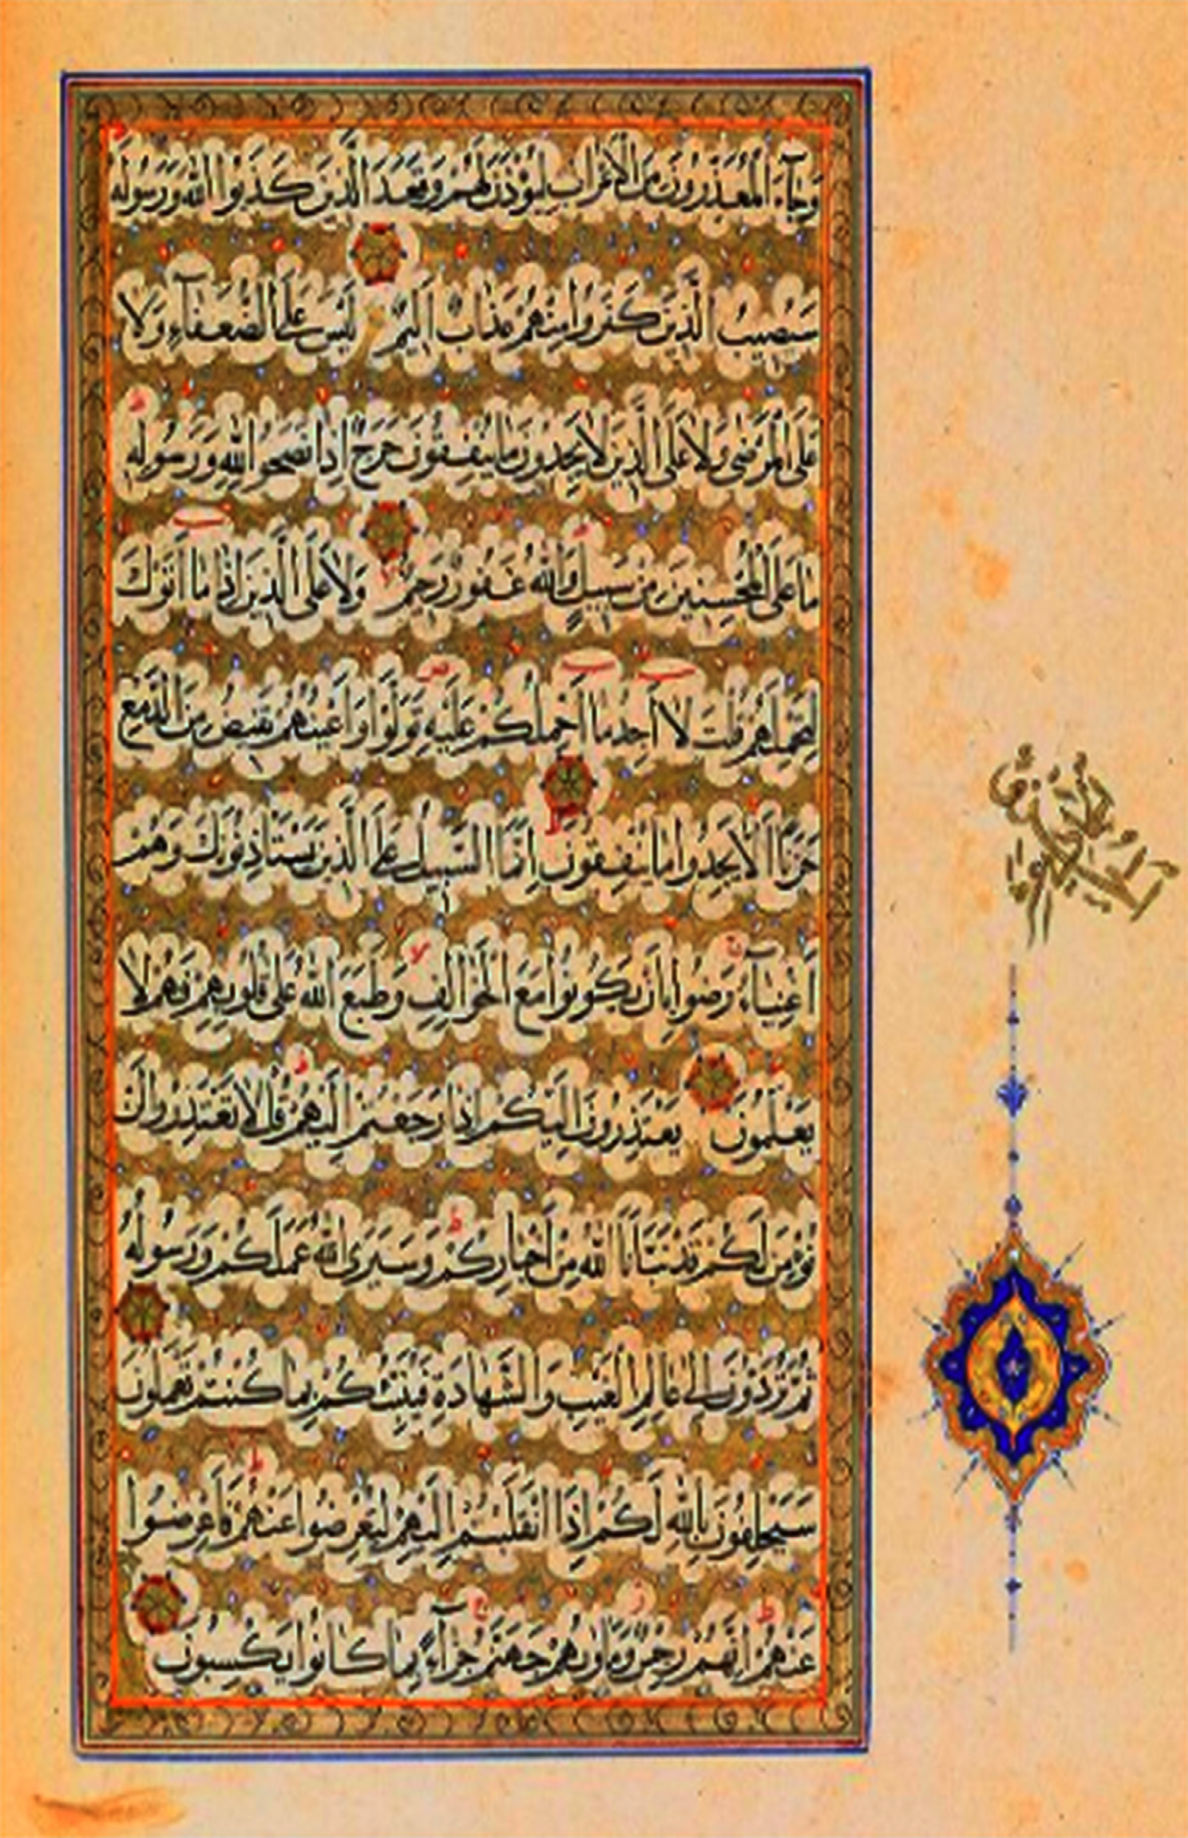 وَجَآءَ الْمُعَذِّرُونَ مِنَ الْاَعْرَابِ لِيُؤْذَنَ لَهُمْ وَقَعَدَ الَّذِينَ كَذَبُوا اللّٰهَ وَرَسُولَهُ
سَيُصِيبُ الَّذِينَ كَفَرُوا مِنْهُمْ عَذَابٌ اَلِيمٌ لَيْسَ عَلَى الضُّعَفَآءِ وَلَا
عَلَى الْمَرْضٰى وَلَا عَلَى الَّذِينَ لَا يَجِدُونَ مَا يُنْفِقُونَ حَرَجٌ اِذَا نَصَحُوا لِلّٰهِ وَرَسُولِهِ
مَا عَلَى الْمُحْسِنِينَ مِنْ سَبِيلٍ وَاللّٰهُ غَفُورٌ رَحِيمٌ وَلَا عَلَى الَّذِينَ اِذَا مَا اَتَوْكَ
لِتَحْمِلَهُمْ قُلْتَ لَا اَجِدُ مَا اَحْمِلُكُمْ عَلَيْهِ تَوَلَّوْا وَاَعْيُنُهُمْ تَفِيضُ مِنَ الدَّمْعِ
حَزَنًا اَلَّا يَجِدُوا مَا يُنْفِقُونَ اِنَّمَا السَّبِيلُ عَلَى الَّذِينَ يَسْتَاْذِنُونَكَ وَهُمْ
اَغْنِيَآءُ رَضُوا بِاَنْ يَكُونُوا مَعَ الْخَوَالِفِ وَطَبَعَ اللّٰهُ عَلٰى قُلُوبِهِمْ فَهُمْ لَا
يَعْلَمُونَ يَعْتَذِرُونَ اِلَيْكُمْ اِذَا رَجَعْتُمْ اِلَيْهِمْ قُلْ لَا تَعْتَذِرُوا لَنْ
نُؤْمِنَ لَكُمْ قَدْ نَبَّاَنَا اللّٰهُ مِنْ اَخْبَارِكُمْ وَسَيَرَى اللّٰهُ عَمَلَكُمْ وَرَسُولُهُ
ثُمَّ تُرَدُّونَ اِلٰى عَالِمِ الْغَيْبِ وَالشَّهَادَةِ فَيُنَبِّئُكُمْ بِمَا كُنْتُمْ تَعْمَلُونَ
سَيَحْلِفُونَ بِاللّٰهِ لَكُمْ اِذَا انْقَلَبْتُمْ اِلَيْهِمْ لِتُعْرِضُوا عَنْهُمْ فَاَعْرِضُوا
عَنْهُمْ اِنَّهُمْ رِجْسٌ وَمَاْوٰيهُمْ جَهَنَّمُ جَزَآءً بِمَا كَانُوا يَكْسِبُونَ